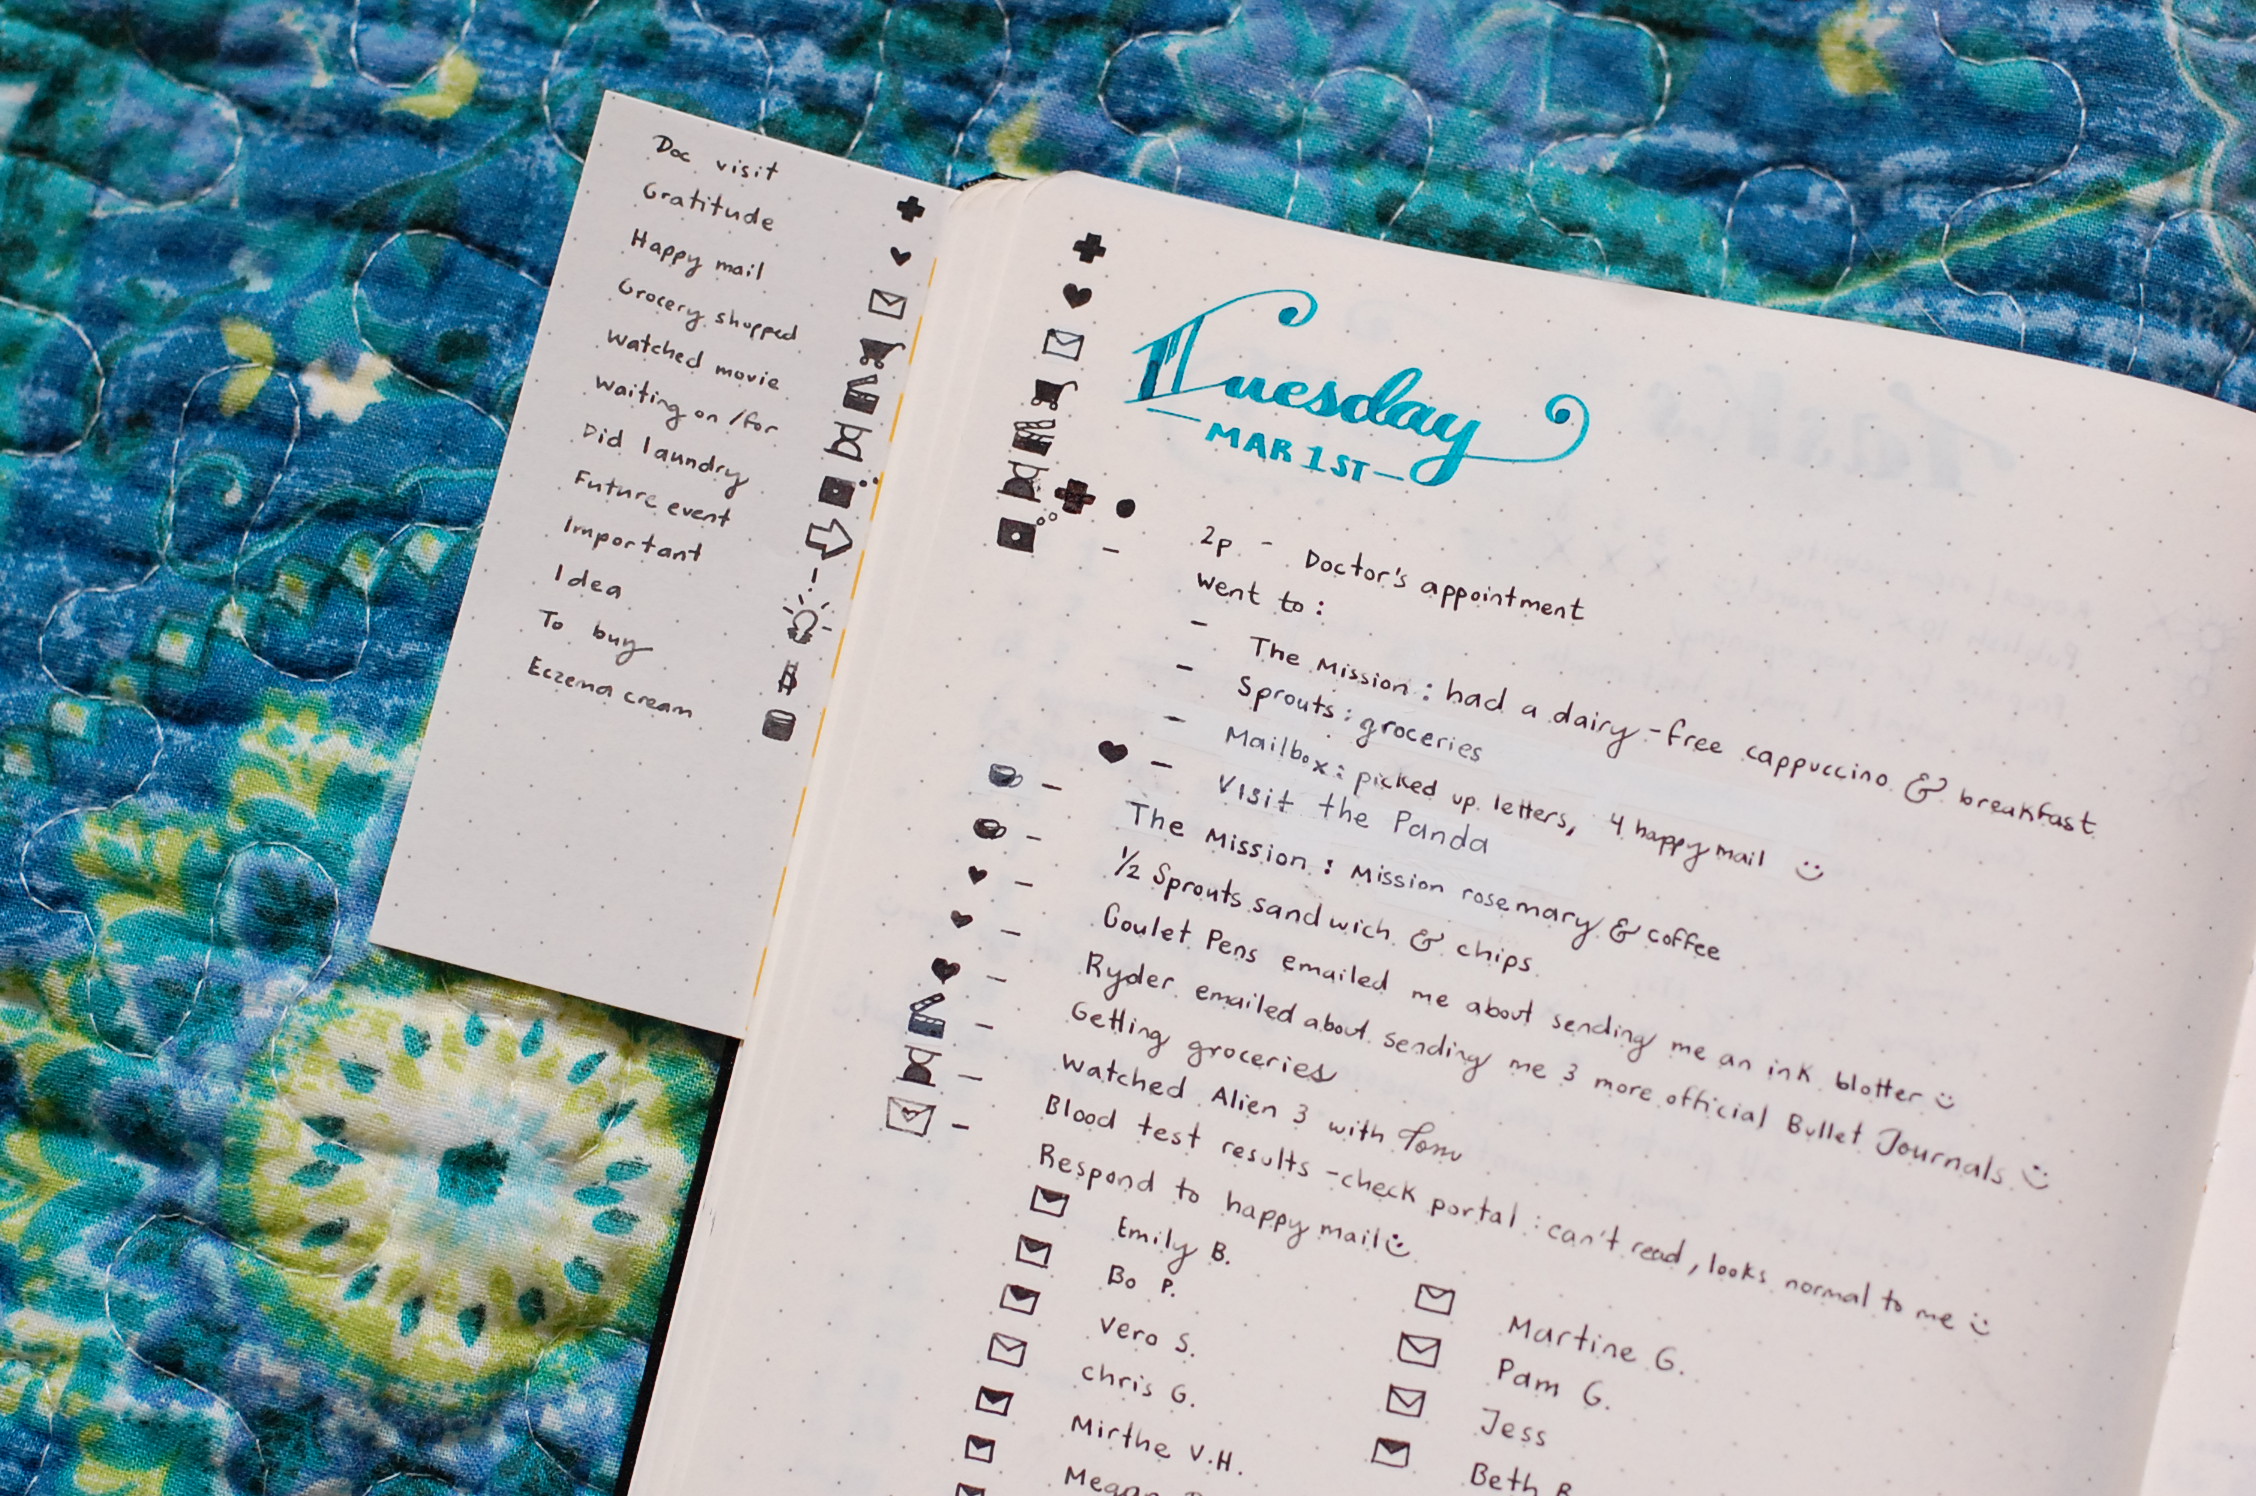 Doc visit
Gratitude
Happy mail
Grocery shopped
Watched movie
Waiting on /for
Did laundry
Future event
Important
Idea
To buy
Eczema cream
Tuesday
- MAR 1ST -
2p - Doctor's appointment
- Went to:
- The Mission: had a dairy-free cappuccino & breakfast
- Sprouts: groceries
- Mailbox: picked up letters, 4 happy mail
- Visit the Panda
- The Mission: Mission rosemary & coffee
- 1/2 Sprouts sandwich & chips
- Goulet Pens emailed me about sending me an ink blotter
- Ryder emailed about sending me 3 more official Bullet Journals
- Getting groceries
- Watched Alien 3 with Tom
- Blood test results - check portal: can't read, looks normal to me
- Respond to happy mail
Emily B.
Bo P.
Vero S.
Chris G.
Mirthe V.H.
Martine G.
Pam G.
Jess
Beth